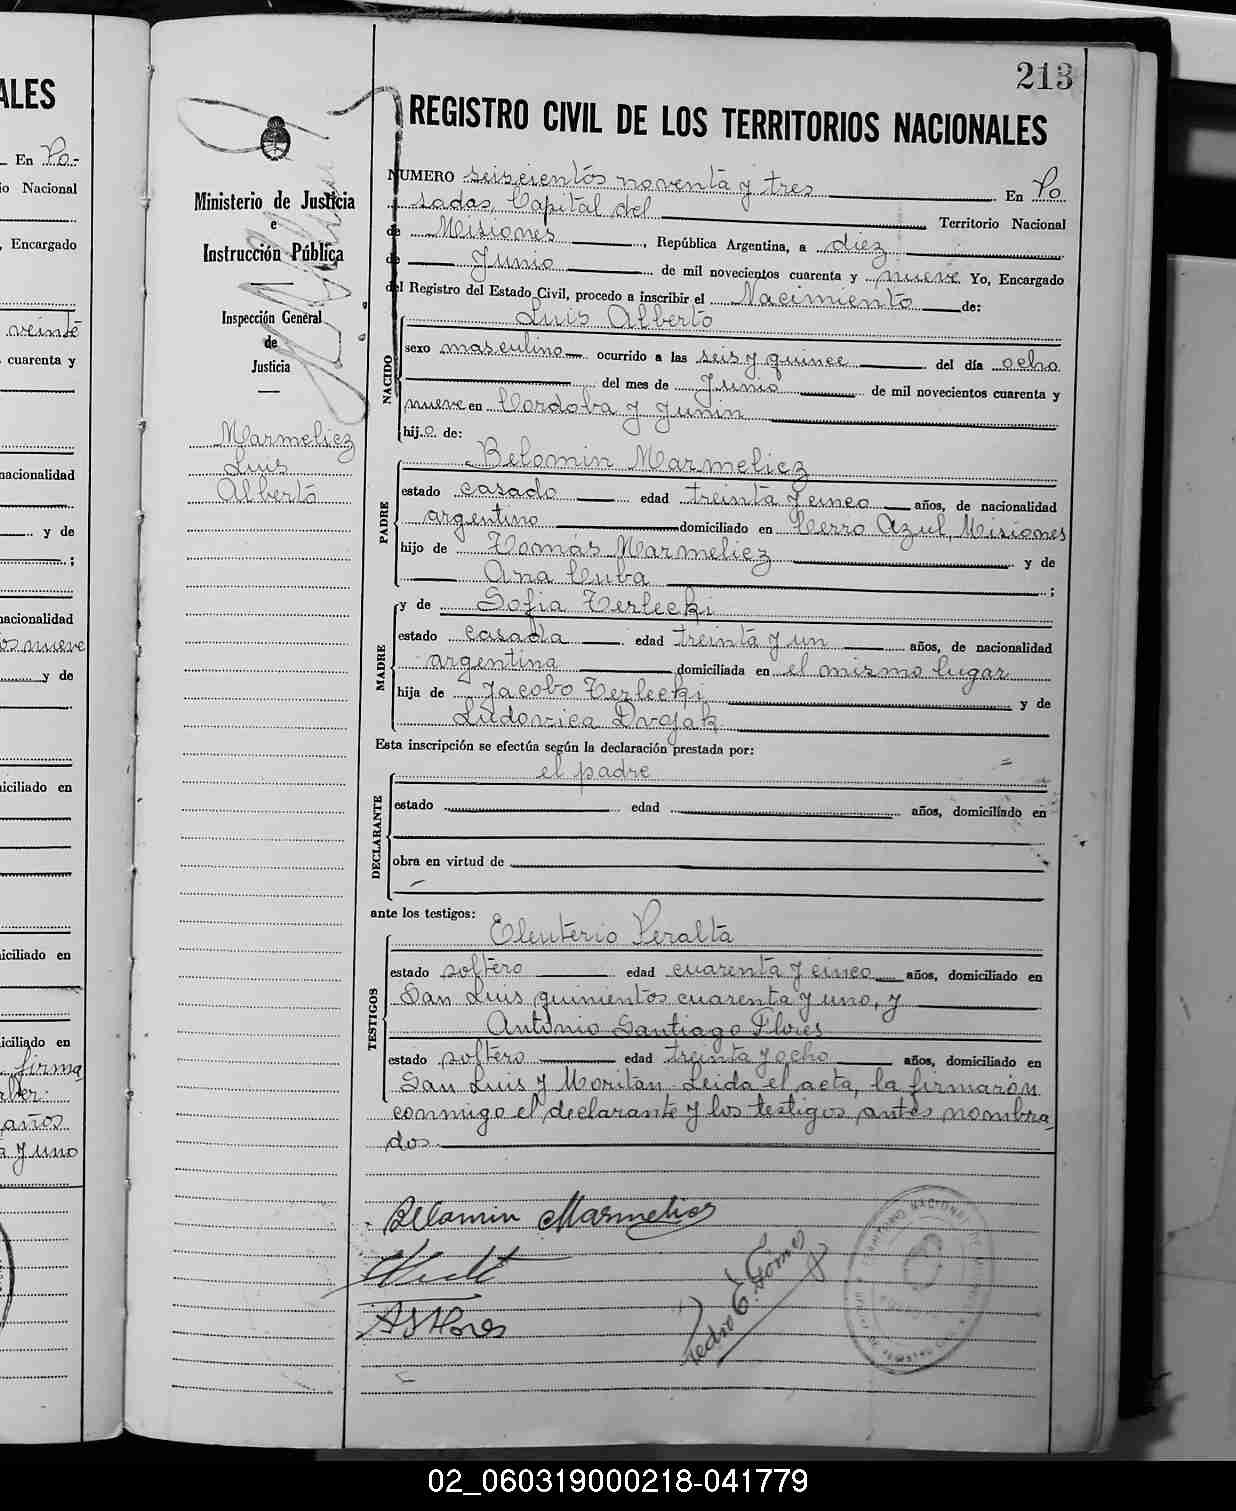 213
REGISTRO CIVIL DE LOS TERRITORIOS NACIONALES
NUMERO seiscientos noventa y tres En Po
sadas, Capital del Territorio Nacional
de Misiones, República Argentina, a diez
de Junio de mil novecientos cuarenta y nueve Yo, Encargado
del Registro del Estado Civil, procedo a inscribir el Nacimiento de:
NACIDO
Luis Alberto
sexo masculino ocurrido a las seis y quince del día ocho
del mes de Junio de mil novecientos cuarenta y
nueve en Cordoba y Junin
hij.o de:
PADRE
Belomin Marmeliez
estado casado edad treinta y cinco años, de nacionalidad
argentino domiciliado en Cerro Azul, Misiones
hijo de Tomás Marmeliez y de
Ana Cuba ;
MADRE
y de Sofia Terlecki
estado casada edad treinta y un años, de nacionalidad
argentina domiciliada en el mismo lugar
hija de Jacobo Terlecki y de
Ludovica Dvojak
Esta inscripción se efectúa según la declaración prestada por:
DECLARANTE
el padre
estado edad años, domiciliado en
obra en virtud de
ante los testigos:
TESTIGOS
Eleuterio Peralta
estado soltero edad cuarenta y cinco años, domiciliado en
San Luis quinientos cuarenta y uno, y
Antonio Santiago Flores
estado soltero edad treinta y ocho años, domiciliado en
San Luis y Moritan. Leida el acta, la firmaron
conmigo el declarante y los testigos antes nombra
dos.
Belomin Marmeliez
ASFlores
Pedro E. Gómez
Ministerio de Justicia
e
Instrucción Pública
Inspección General
de
Justicia
Marmeliez
Luis
Alberto
ALES
En Po-
io Nacional
, Encargado
veinte
cuarenta y
nacionalidad
y de
;
nacionalidad
os nueve
y de
iciliado en
iciliado en
iciliado en
firma
aber:
años
a y uno
02_060319000218-041779